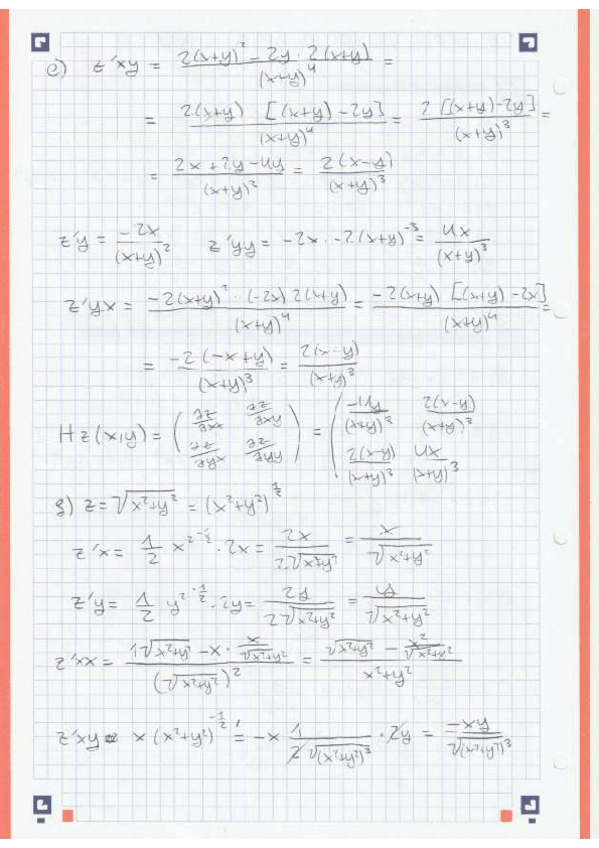 e) z'xy = (2(x+y)² - 2y · 2(x+y))/(x+y)⁴ =
= (2(x+y) · [(x+y) - 2y])/(x+y)⁴ = (2 [(x+y) - 2y])/(x+y)³ =
= (2x + 2y - 4y)/(x+y)² = (2(x-y))/(x+y)³
z'y = (-2x)/(x+y)² z'yy = -2x · -2(x+y)⁻³ = (4x)/(x+y)³
z'yx = (-2(x+y)² · (-2x) 2(x+y))/(x+y)⁴ = (-2(x+y) [(x+y) - 2x])/(x+y)⁴ =
= (-2(-x+y))/(x+y)³ = (2(x-y))/(x+y)³
Hz(x,y) = (∂z/∂xx ∂z/∂xy ; ∂z/∂yx ∂z/∂yy) = (-4y/(x+y)³ 2(x-y)/(x+y)³ ; 2(x-y)/(x+y)³ 4x/(x+y)³)
z = √(x²+y²) = (x²+y²)^½
z'x = 1/2 x²^-½ · 2x = 2x/(2√(x²+y²)) = x/√(x²+y²)
z'y = 1/2 y²^-½ · 2y = 2y/(2√(x²+y²)) = y/√(x²+y²)
z'xx = (1√(x²+y²) - x · x/√(x²+y²))/(√(x²+y²))² = (√(x²+y²) - x²/√(x²+y²))/(x²+y²)
z'xy = x (x²+y²)^-½ ' = -x 1/(2√(x²+y²)³) · 2y = -xy/√(x²+y²)³